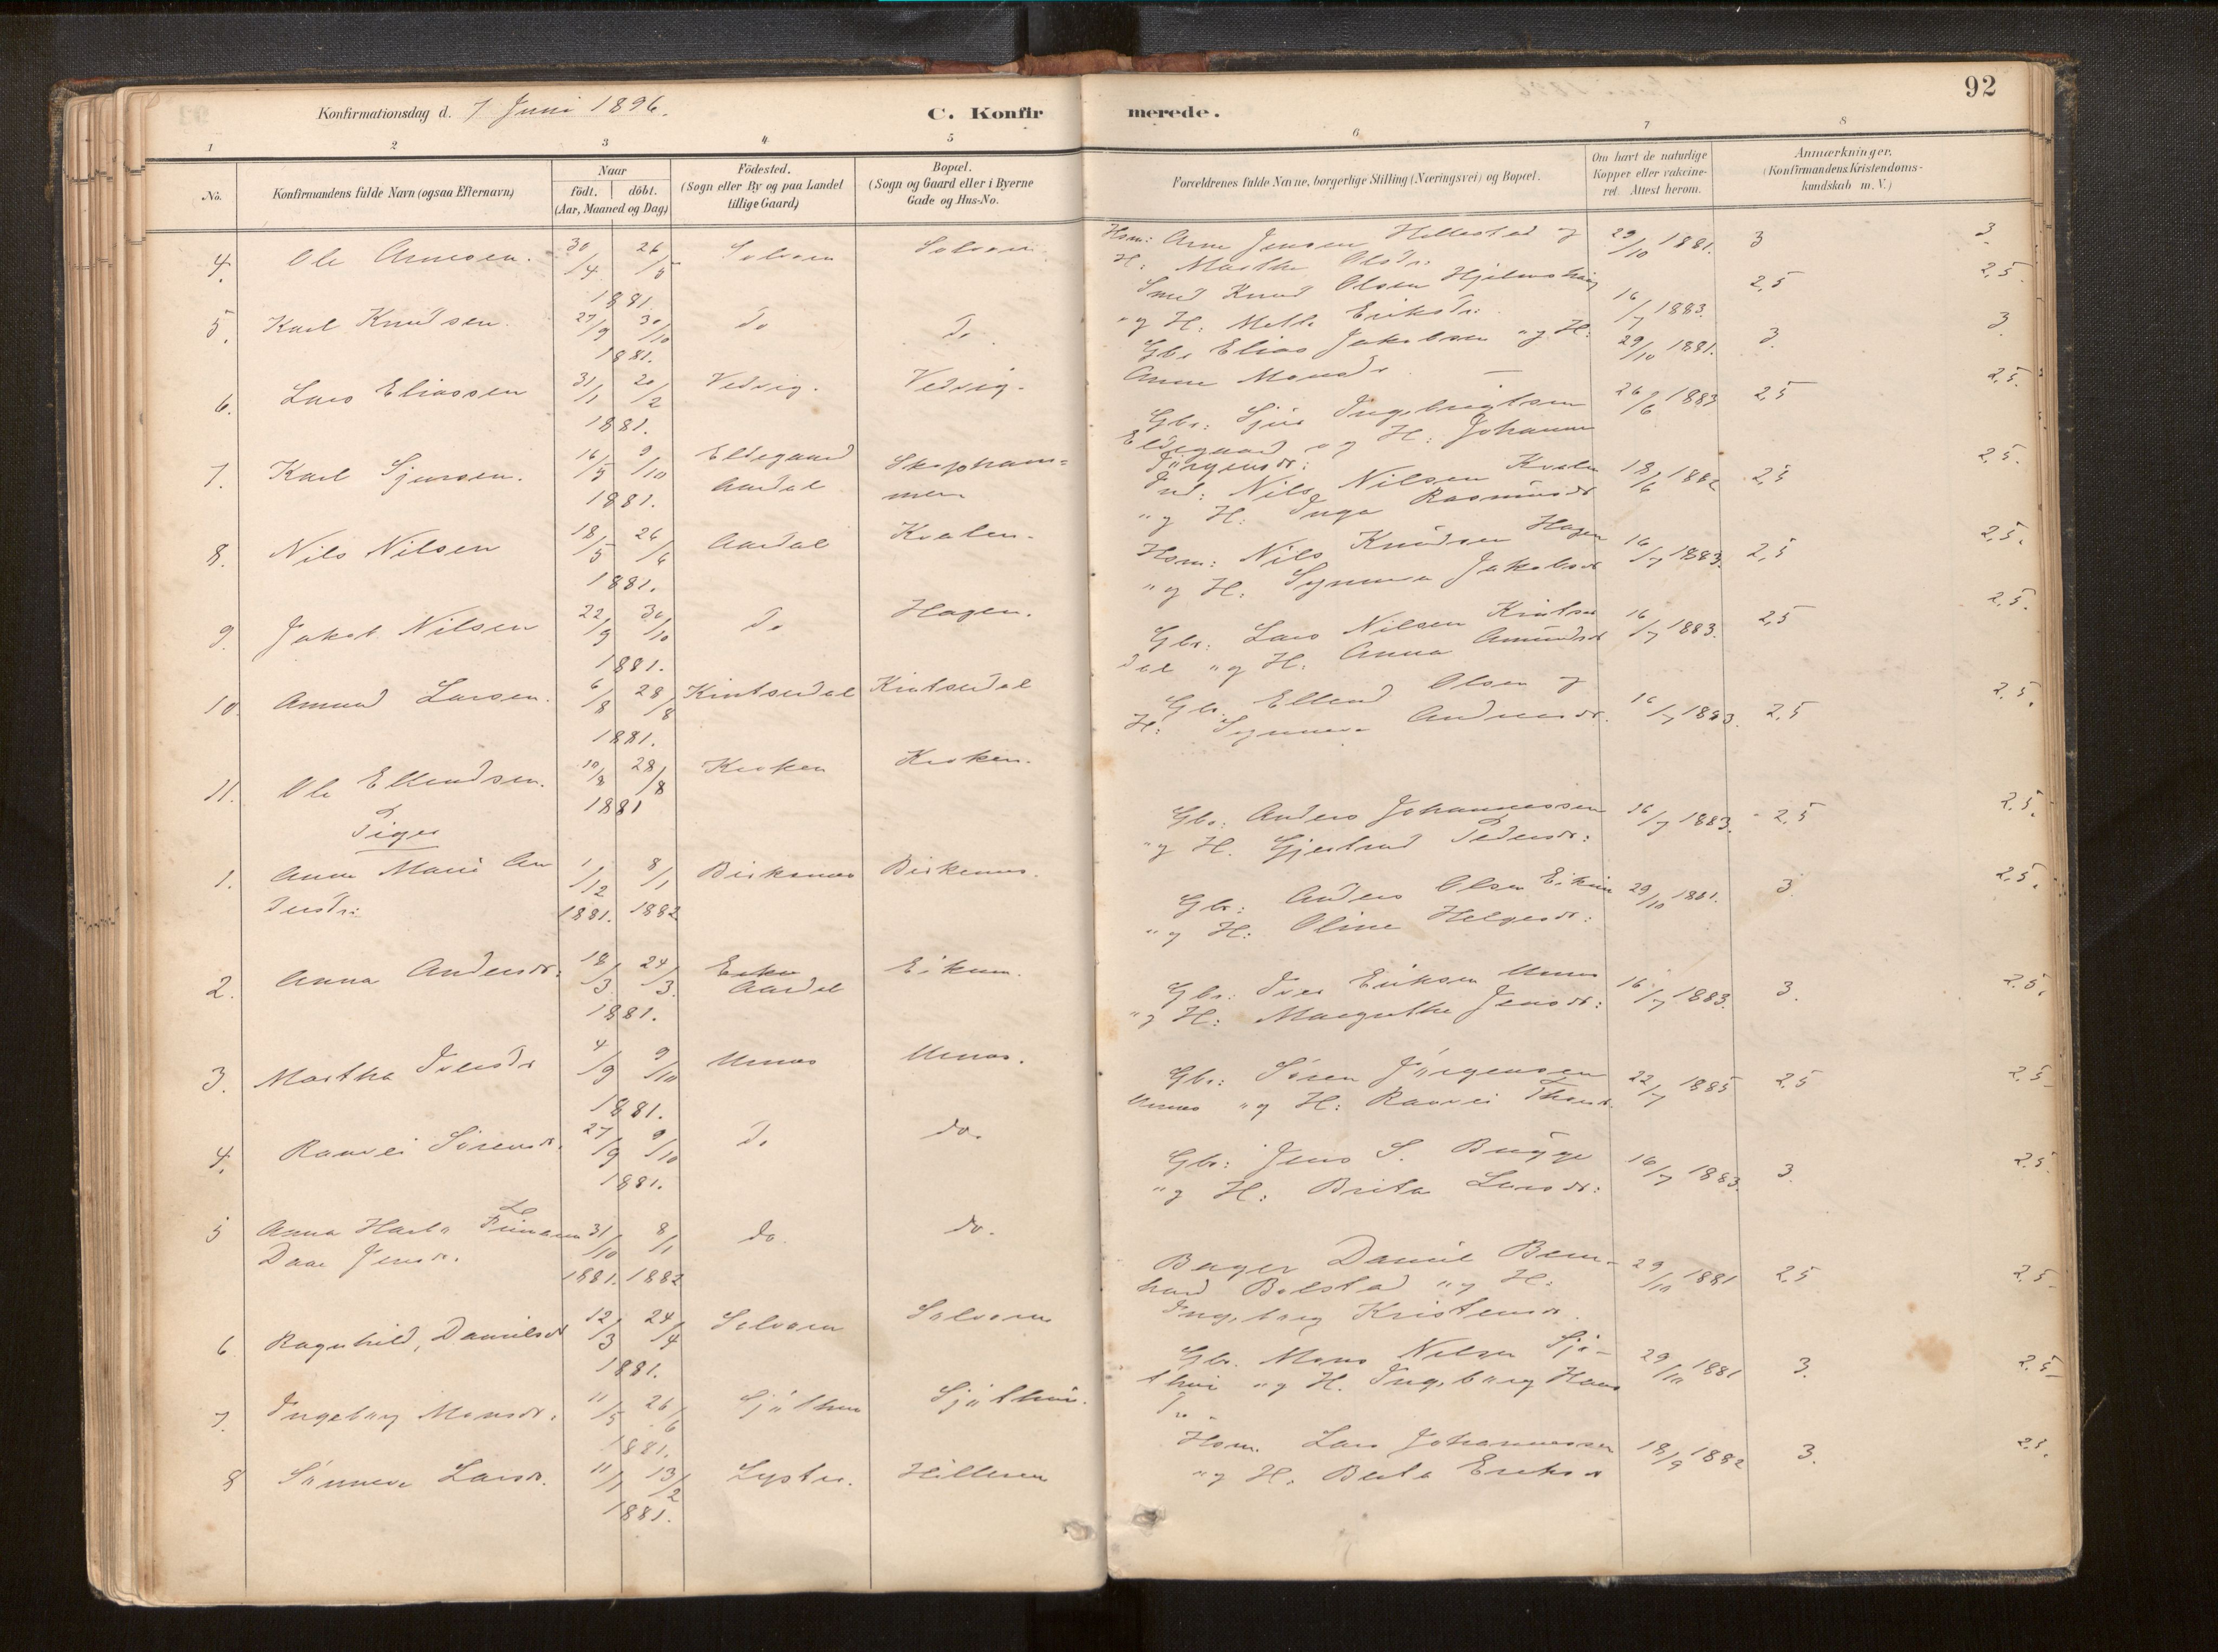 92
Konfirmationsdag d. 7 Juni 1896.
C. Konfir
merede.
1 2 3 4 5
6 7 8
No.
Konfirmandens fulde Navn (ogsaa Efternavn)
Naar
födt. döbt.
(Aar, Maaned og Dag)
Födested.
(Sogn eller By og paa Landet
tillige Gaard)
Bopæl.
(Sogn og Gaard eller i Byerne
Gade og Hus-No.
Forældrenes fulde Navne, borgerlige Stilling (Næringsvei) og Bopæl.
Om havt de naturlige
Kopper eller vakcine-
ret. Attest herom.
Anmærkninger.
(Konfirmandens Kristendoms-
kundskab m. V.)
4. Ole Arnesen. 30/4 26/5 Solvorn Solvorn
1881.
Hsm: Arne Jensen Hillestad og 29/10 1881. 3 3
H: Marthe Olsdr:
5. Karl Knudsen. 27/9 30/10 do do
1881.
Smed Knud Olsen 16/7 1883. 2,5 2,5.
og H: Mette Eriksdr:
6. Lars Eliassen 31/1 20/2 Vedvig. Vedvig.
1881.
Gbr Elias Jakobsen og H: 29/10 1881. 3. 3.
Anna Monsdr. —
7. Karl Sjursen. 16/5 9/10 Eldegaard
Aardal
1881.
Gbr: Sjur Ingebrigtsen 26/6 1883 2,5 2,5.
Eldegaard og H: Johanne
Jørgensdr:
8. Nils Nilsen 18/5 26/6 Aardal Kvalen.
1881.
Ind: Nils Nilsen Kvalen 18/6 1882 2,5 2,5.
og H: Inga Rasmusdr
9. Jakob Nilsen 22/9 30/10 do Hagen.
1881.
Hsm: Nils Knudsen Hagen 16/7 1883. 2,5 2,5.
og H. Synneva Jakobsdr
10. Amund Larsen. 6/8 28/8 Kintsedal Kintsedal
1881.
Gbr: Lars Nilsen Kintse 16/7 1883. 2,5 2,5.
dal og H: Anna Amundsdr
11. Ole Ellendsen. 10/8 28/8 Kroken Kroken.
1881
Gbr. Ellend Olsen og 16/7 1883. 2,5 2,5.
H: Synneva Andersdr.
Piger
1. Anna Marie An 1/12 8/1
dersdr: 1881. 1882
Gbr: Anders Johannessen 16/7 1883. 2,5 2,5.
og H. Gjertrud Pedersdr:
2. Anna Andersdr: 18/3 24/3 Eikum.
Aardal
1881.
Gbr: Anders Olsen Eikum 29/10 1881. 3. 2,5.
og H: Oline Helgesdr:
3. Martha Iversdr 4/9 9/10 Urnes Urnes.
1881.
Gbr: Iver Eriksen Urnes 16/7 1883. 3. 2,5.
og H: Margrethe Jensdr:
4. Ranvei Sörensdr. 27/9 9/10 do do.
1881.
Gbr: Sören Jörgensen 22/7 1885 2,5 2,5
Urnes og H: Ranvei
5 Anna 31/10 8/1 do. do.
Daae Jensdr. 1881. 1882
Gbr: Jens S. Bugge 16/7 1883. 3. 2,5.
og H: Brita Larsdr:
6 Ragnhild, Danielsdr 12/3 24/4 Solvorn Solvorn
1881.
Bager Daniel Bern- 29/10 1881 2,5 2,5
hard Bolstad og H:
Ingeborg Kristensdr.
7. Ingeborg Monsdr: 11/5 26/6
1881.
Gbr. Mons Nilsen 29/10 1881 3. 2,5
og H. Ingeborg Hans
8 Sönneva Larsdr. 11/1 13/2 Lyster. Hilleren
1881.
Hsm. Lars Johannessen 18/9 1882 3. 2,5.
og H. Berta Eriksdr